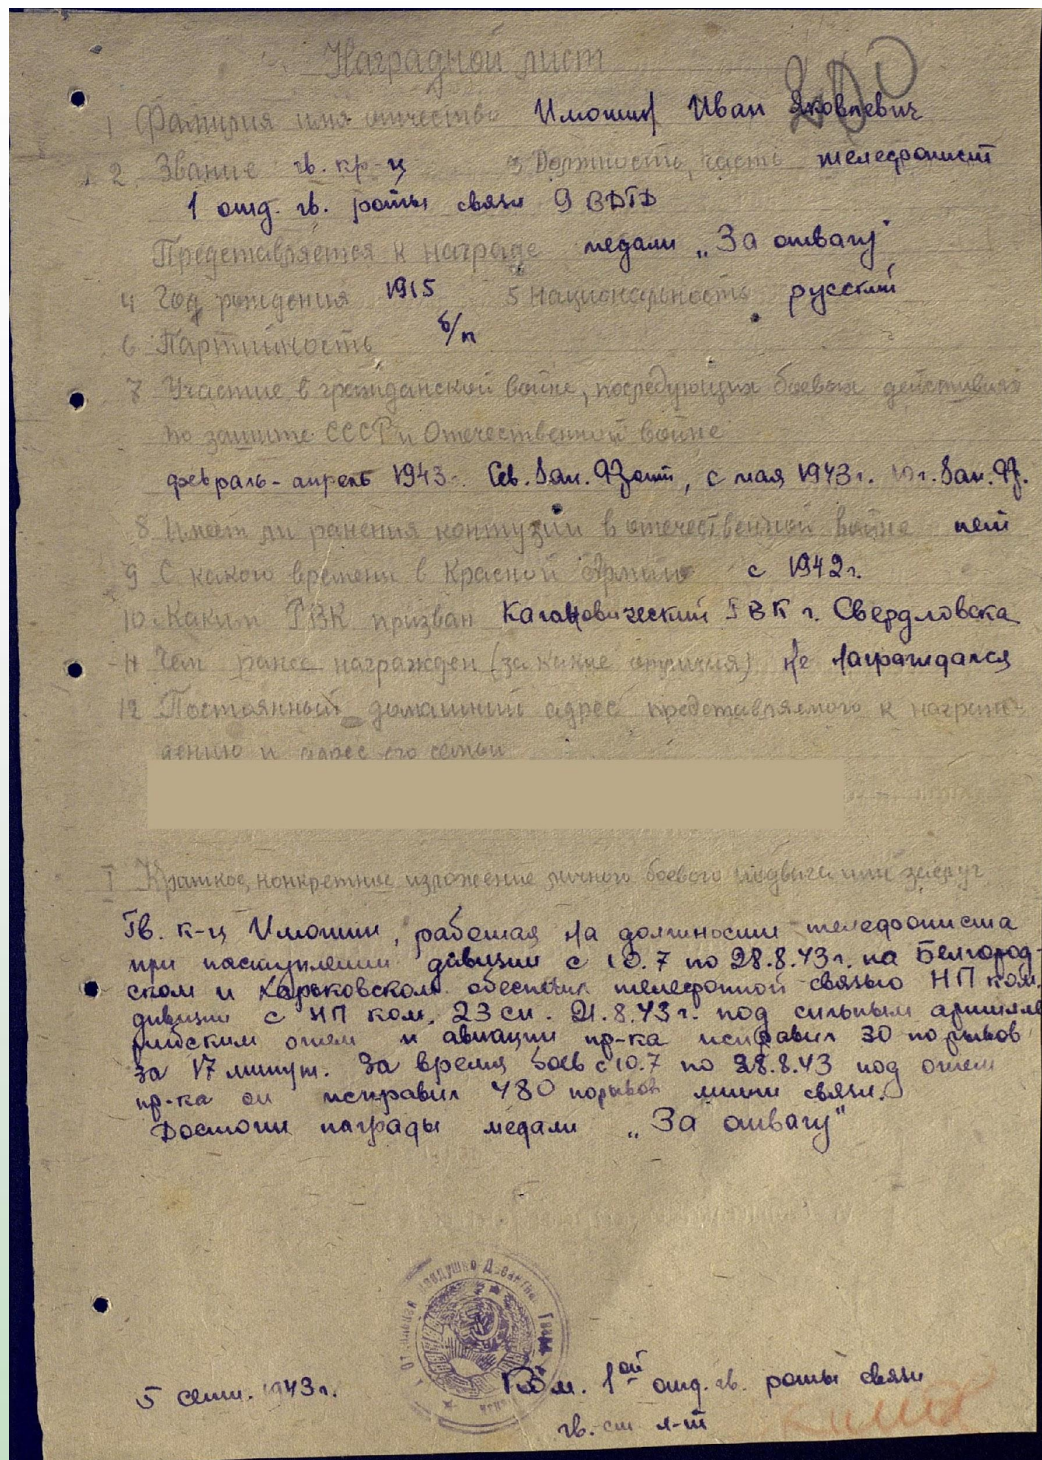 Наградной лист
1 Фамилия имя отчество Имошин Иван Яковлевич
2. Звание гв. кр-ц 3 Должность, часть телефонист
1 отд. гв. роты связи 9 ВДГД
Представляется к награде медали „За отвагу"
4 Год рождения 1915 5 Национальность русский
6 Партийность б/п
7 Участие в гражданской войне, последующих боевых действиях
по защите СССР и Отечественной войне
февраль-апрель 1943г. Сев. Зап. Фронт, с мая 1943г. Зап. Ф.
8 Имеет ли ранения контузии в отечественной войне нет
9 С какого времени в Красной Армии с 1942г.
10 Каким РВК призван Кагановический РВК г. Свердловска
11 Чем ранее награжден (за какие отличия) Не Награждался
12 Постоянный домашний адрес представляемого к награж
дению и адрес его семьи
I Краткое, конкретное изложение личного боевого подвига или заслуг
Гв. к-ц Имошин, работая На должности телефониста
при наступлении дивизии с 10.7 по 28.8.43г. на Белгород-
ском и Харьковском обеспечил телефонной связью НП ком.
дивизии с НП ком. 23 сп. 21.8.43г. под сильным артилле
рийским огнем и авиации пр-ка исправил 30 порывов
за 17 минут. За время боев с 10.7 по 28.8.43 под огнем
пр-ка он исправил 480 порывов линии связи.
Достоин награды медали „За отвагу"
5 сент. 1943г. 1ой отд. гв. роты связи
гв. ст л-т